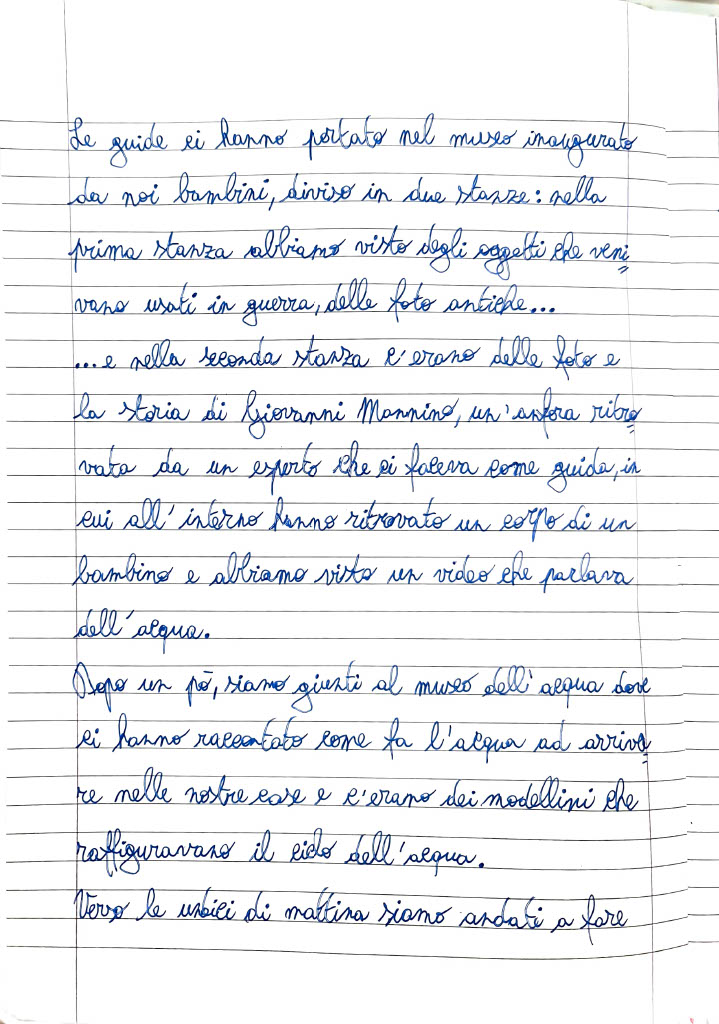 Le guide ci hanno portato nel museo inaugurato
da noi bambini, diviso in due stanze: nella
prima stanza abbiamo visto degli oggetti che veni
vano usati in guerra, delle foto antiche...
...e nella seconda stanza c'erano delle foto e
la storia di Giovanni Mannino, un'anfora ritro
vata da un esperto che ci faceva come guida, in
cui all'interno hanno ritrovato un corpo di un
bambino e abbiamo visto un video che parlava
dell'acqua.
Dopo un pò, siamo giunti al museo dell'acqua dove
ci hanno raccontato come fa l'acqua ad arriva
re nelle nostre case e c'erano dei modellini che
raffiguravano il ciclo dell'acqua.
Verso le undici di mattina siamo andati a fare